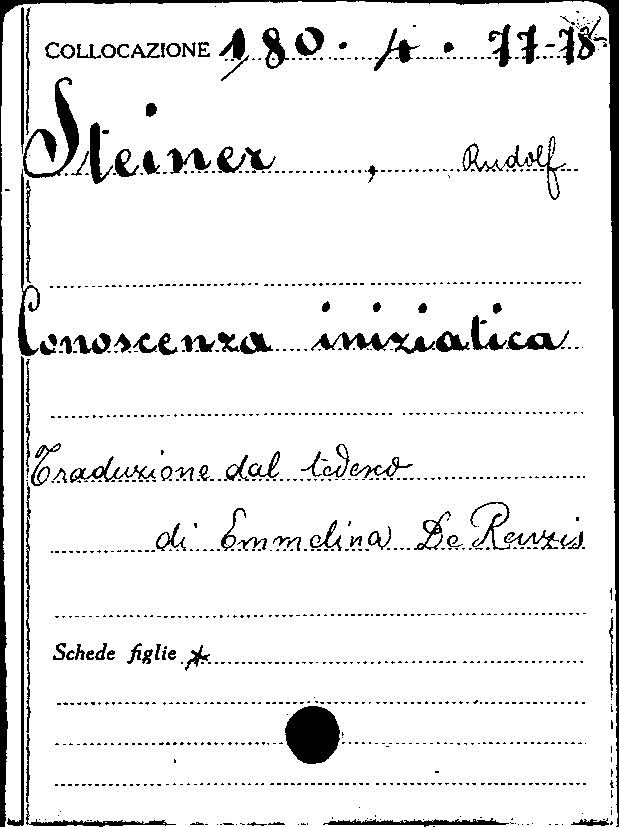 COLLOCAZIONE 180. 4. 77-78-
Steiner, Rudolf
Conoscenza iniziatica
Traduzione dal tedesco
di Emmelina De Renzis
Schede figlie *